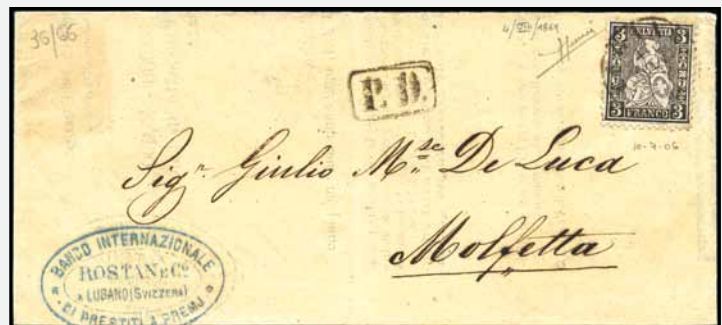 36/66
4/VIII/1864
HELVETIA
3 3
3 3
FRANCO
10-7-06
P. D.
Sigr. Giulio Mse. De Luca
Molfetta
BANCO INTERNAZIONALE
ROSTAN E Co.
A LUGANO (SVIZZERA)
DI PRESTITI A PREMJ